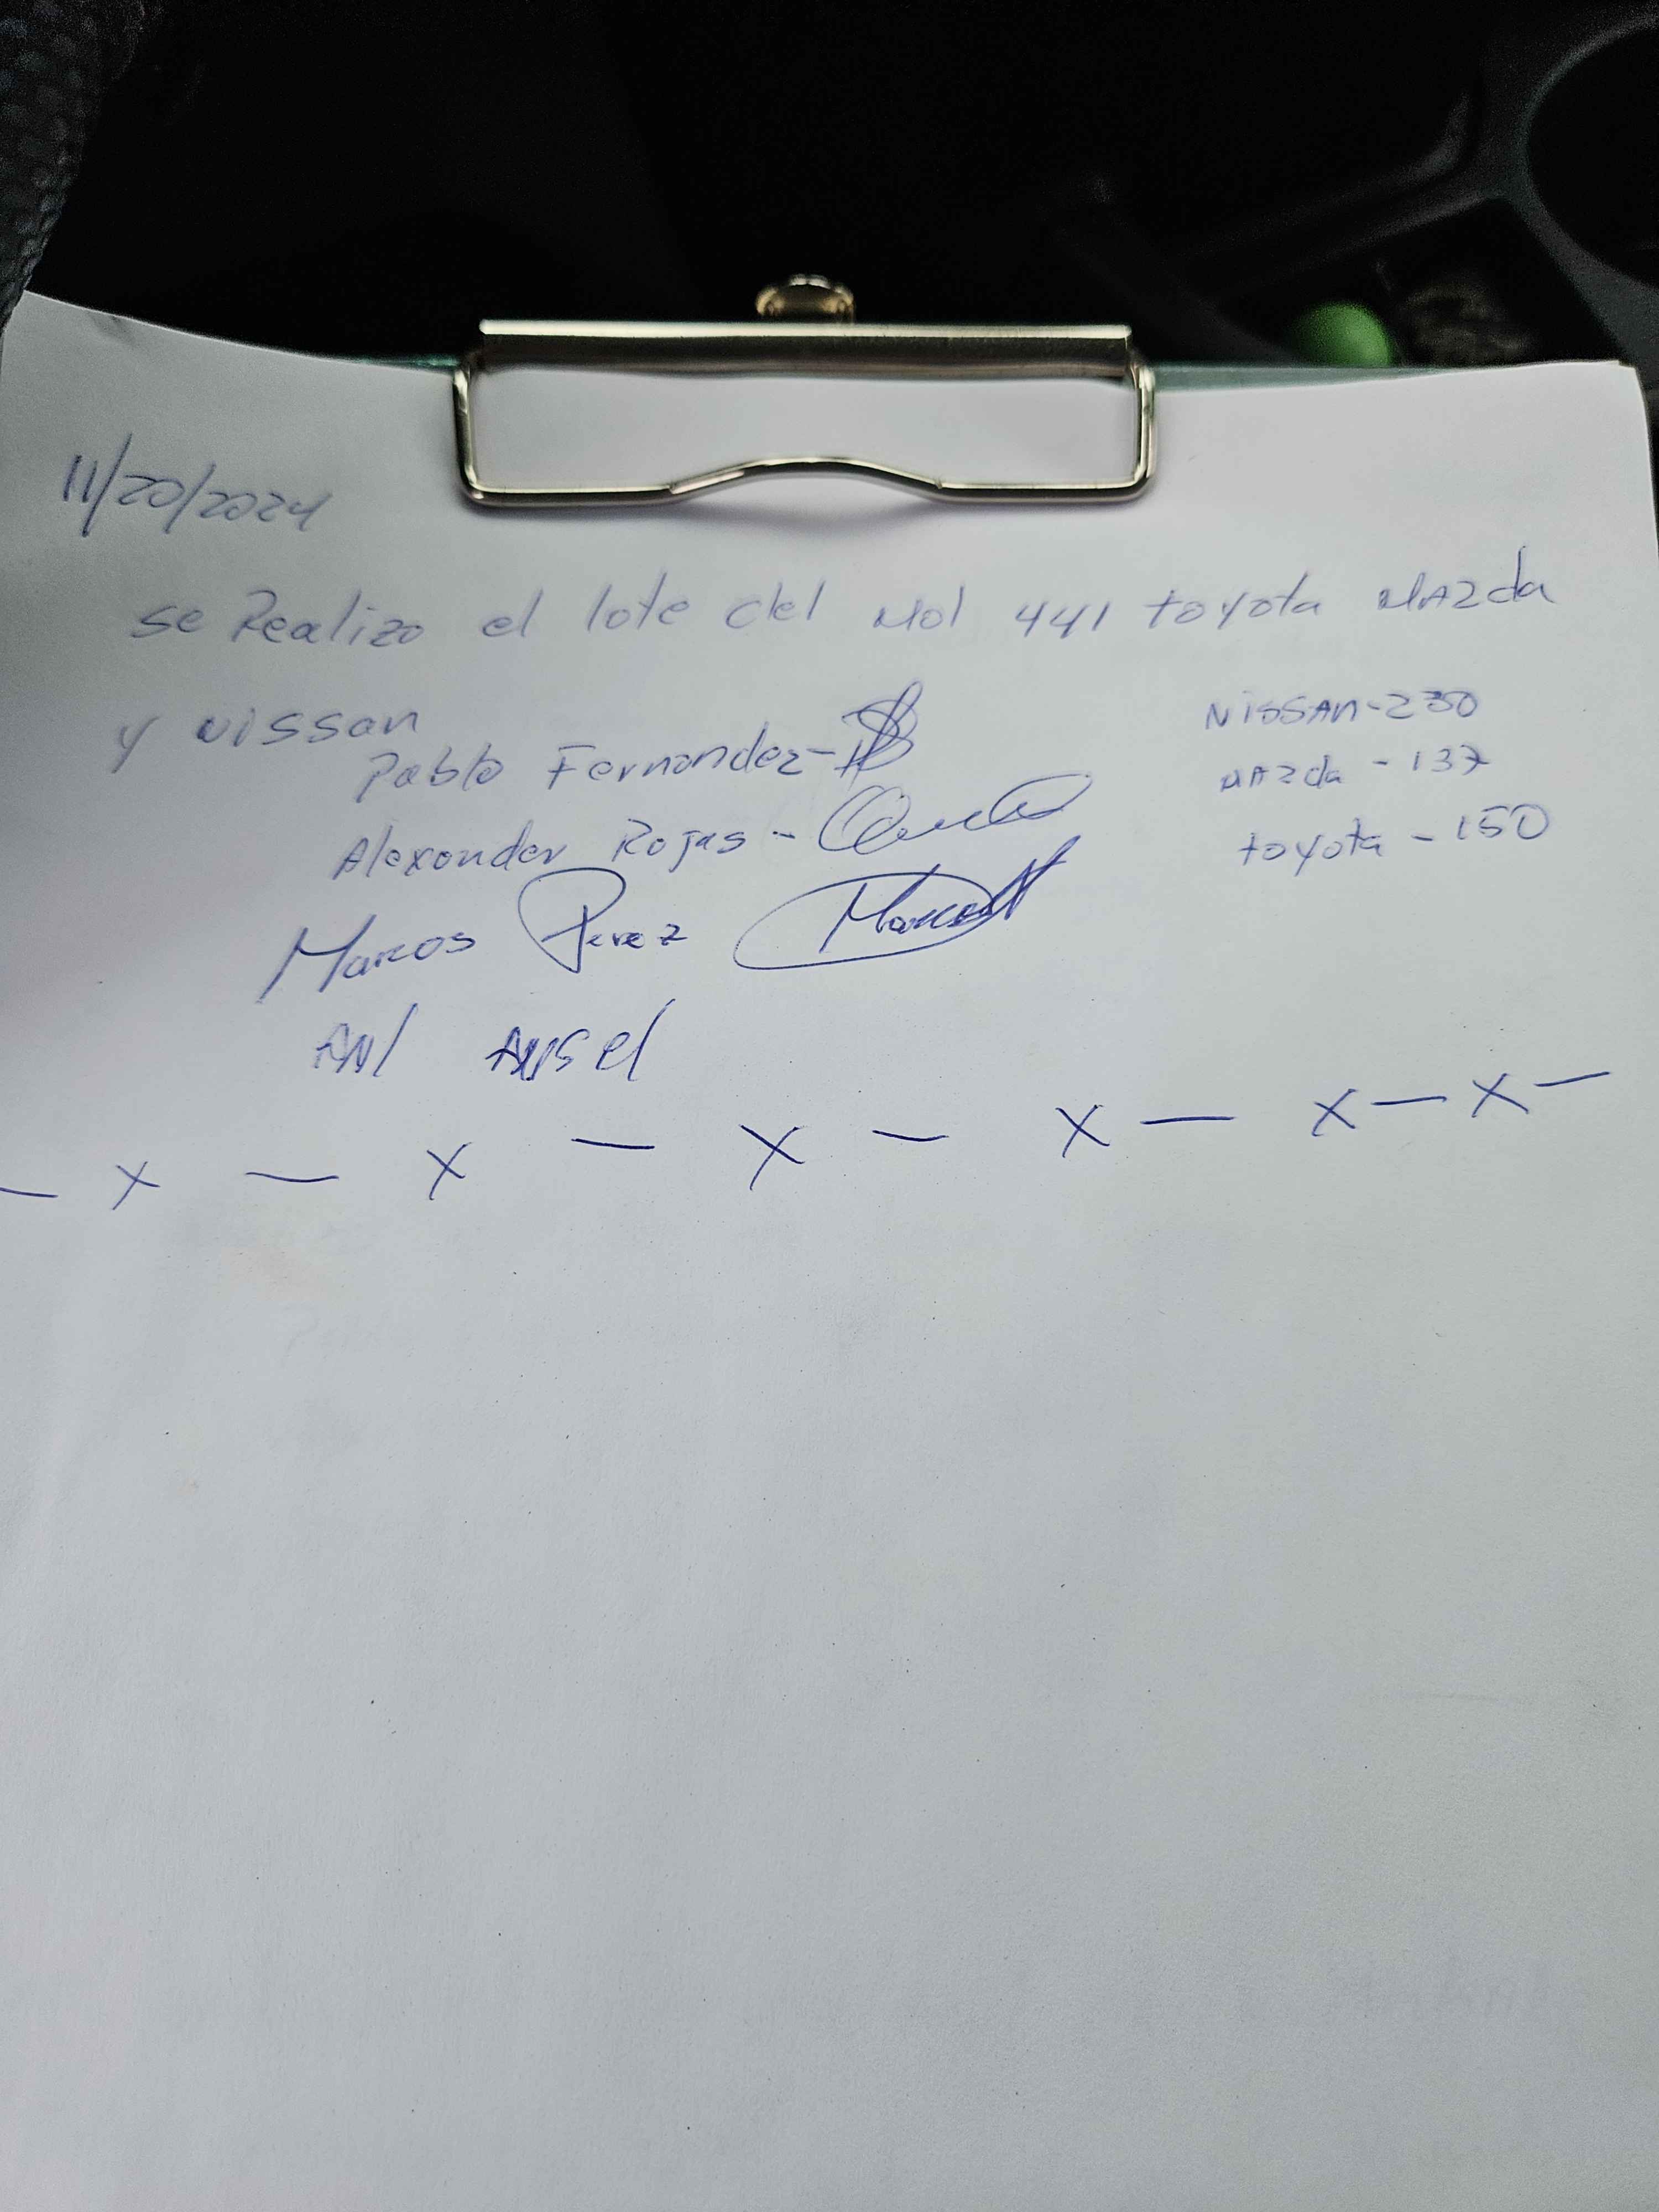 11/20/2024
se Realizo el lote del Mol 441 toyota MAzda
y Nissan
Pablo Fernandez -
Alexander Rojas -
Marcos Perez Marcos
Nissan - 230
MAzda - 137
toyota - 150
x - x - x - x - x - x -